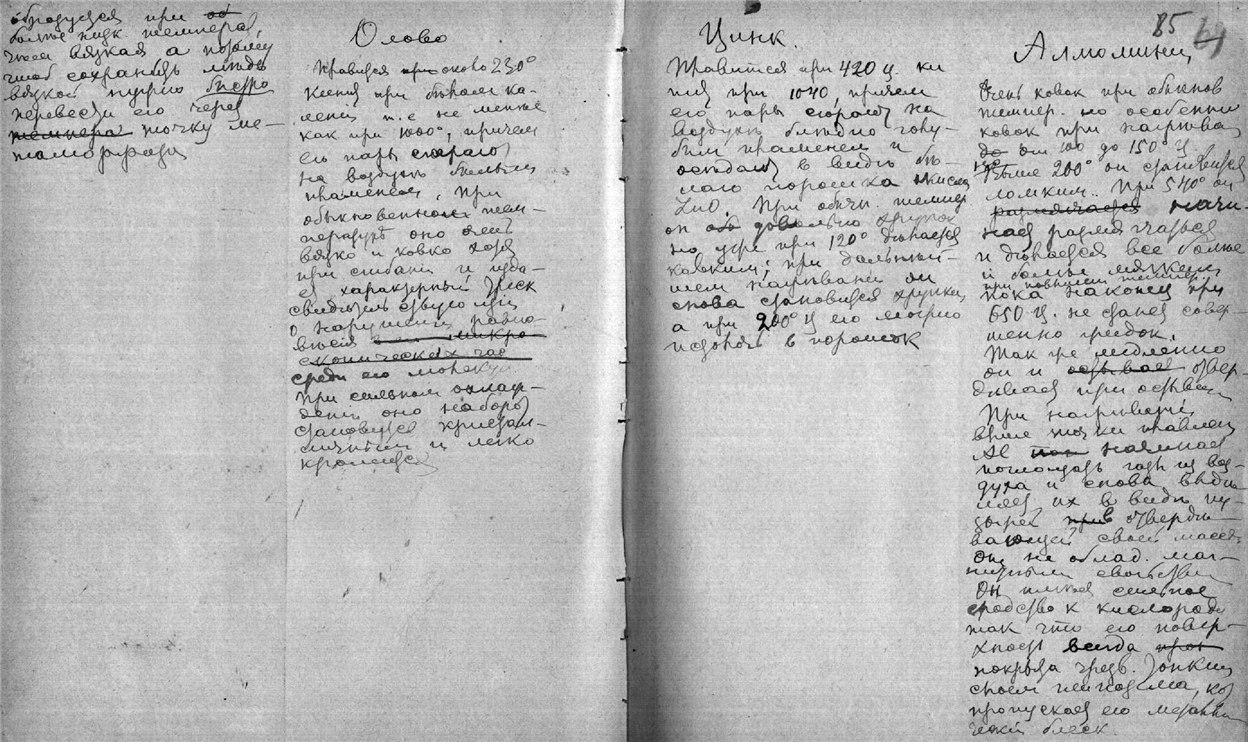 образуется при об
более низк темпера,
вязкая а потому
чтоб сохранить медь
вязкой нужно быстро
перевести его через
темпера точку ме-
таморфозы
Олово
Плавится при около 230°
Кипит при белом ка-
лении т.е не менее
как при 1600°, причем
его пары сгорают
на воздухе белым
пламенем. При
обыкновенной тем-
пературе оно очень
вязко и ковко хотя
при сгибании и изда-
ет характерный треск
свидетельствующий
о нарушении равно-
весия микро
скопических час
среди его молекул
При сильном охлаж-
дении оно наоборот
становится кристал-
личным и легко
крошится
Цинк.
Плавится при 420 ц. ки
пит при 1040, причем
его пары сгорают на
воздухе бледно голу-
бым пламенем и
оседают в виде бе-
лого порошка окиси
ZnO. При обычн. темпер
он об довольно хрупок
но уже при 120° делается
ковким; при дальней-
шем нагревании он
снова становится хрупким
а при 200° Ц его можно
истолочь в порошок
85
Алюминий
Очень ковок при обыкнов
темпер. но особенно
ковок при нагрева
до от 100 до 150° ц.
Выше 200° он становится
ломким. При 540° он
размягчается начи-
нает размягчаться
и делается все более
и более мягким
при повышении темпер.
пока наконец при
650 ц. не станет совер-
шенно жидок.
Так же медленно
он и остывает отвер-
девает при остыван
При нагревании
выше точки плавлен
Al начинает
поглощать газы из воз-
духа и снова выде
ляет их в виде пу-
зырей при отверде-
вающей своей массе
Он не облад. маг-
нитными свойствами
Он имеет сильное
сродство к кислороду
так что его повер-
хность всегда
покрыта чрезв. тонким
слоем глинозема, ко
пропускает его металли
ческий блеск.